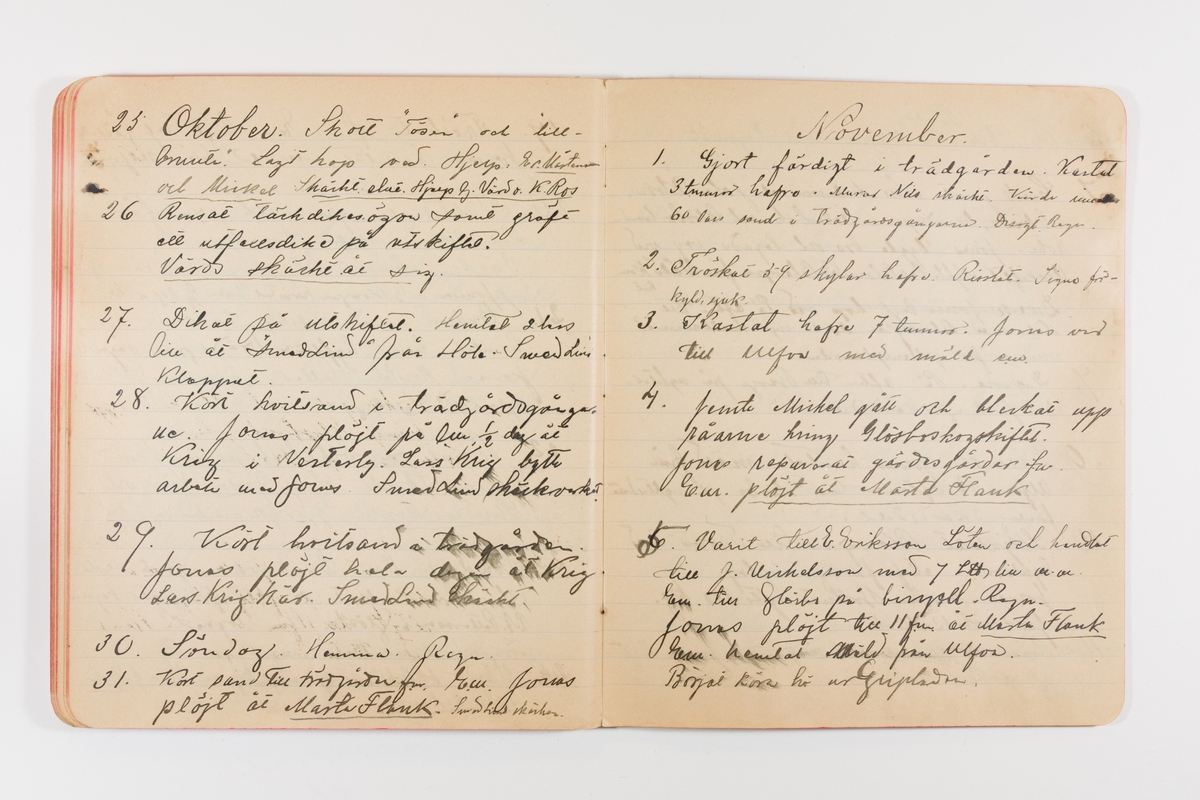 25 Oktober. Skott "Tösen" och till-
Lagt hop ved. Hjelp. Er. Mårtens
och Mickel Skäckt Hjelp fr. Vård o. K Ros
26 Rensat som gräft
ett utfallsdike på utskiftet.
Vårds skäckt åt sig.
27. Dikat på utskiftet. Hemtat 2 lass
åt Smed Lind från Höle. Smed Lind
Klappat.
28. Kört hvitsand i trädgårdsgånga-
ne. Jonas plöjt på 1/2 dag åt
Krig i Vesterby. Lars Krig bytt
arbete med Jonas. Smed Lind skäckverket
29. Kört hvitsand i trädgården
Jonas plöjt hela dagen åt Krig.
Lars Krig här. Smed Lind Skäckt.
30. Söndag. Hemma. Regn.
31. Kört sand till trädgården fm. Em. Jonas
plöjt åt Marta Flank. Smed Lind skäckta.
November.
1. Gjort färdigt i trädgården. Kastat
3 tunnor hafre. Murar Nils skäckt.
60 lass sand i trädgårdsgångarne. Disigt Regn.
2. Tröskat skylar hafre. Risslat. Signe för-
kyld, sjuk.
3. Kastat hafre 7 tunnor. Jonas
till Ulfva med mäld em.
4. Jemte Mickel gått och bleckat upp
råarne kring Glösboskogskiftet.
Jonas reparerat gärdesgårdar fm.
Em. plöjt åt Marta Flank
5. Varit till E. Eriksson Löten och handlat
till J. Mickelsson med 7 m.m.
Em. till på Regn.
Jonas plöjt till 11 fm. åt Marta Flank
Em. hemtat Mäld från Ulfva.
Börjat köra hö ur Gripladan.